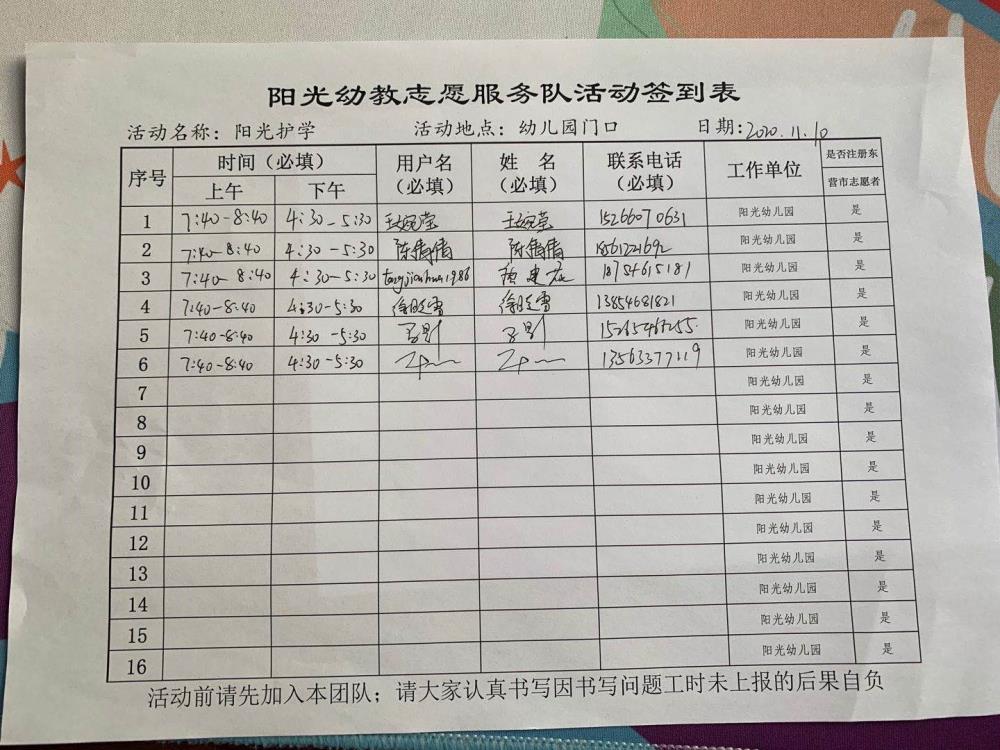 阳光幼教志愿服务队活动签到表
活动名称：阳光护学 活动地点：幼儿园门口 日期：2020.11.10
序号 时间（必填） 用户名（必填） 姓 名（必填） 联系电话（必填） 工作单位 是否注册东营市志愿者
上午 下午
1 7:40-8:40 4:30-5:30 15266070631 阳光幼儿园 是
2 7:40-8:40 4:30-5:30 陈倩倩 陈倩倩 阳光幼儿园 是
3 7:40-8:40 4:30-5:30 18754615181 阳光幼儿园 是
4 7:40-8:40 4:30-5:30 13854681821 阳光幼儿园 是
5 7:40-8:40 4:30-5:30 阳光幼儿园 是
6 7:40-8:40 4:30-5:30 13563377119 阳光幼儿园 是
7 阳光幼儿园 是
8 阳光幼儿园 是
9 阳光幼儿园 是
10 阳光幼儿园 是
11 阳光幼儿园 是
12 阳光幼儿园 是
13 阳光幼儿园 是
14 阳光幼儿园 是
15 阳光幼儿园 是
16 阳光幼儿园 是
活动前请先加入本团队；请大家认真书写因书写问题工时未上报的后果自负